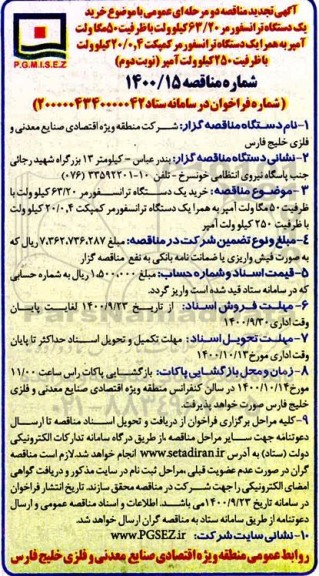 آگهی تجدید مناقصه دو مرحله ای عمومی با موضوع خرید
یک دستگاه ترانسفورمر ۶۳/۲۰ کیلو ولت با ظرفیت ۵۰ مگا ولت
آمپر به همراه یک دستگاه ترانسفورمر کمپکت ۲۰/۰,۴ کیلو ولت
با ظرفیت ۲۵۰ کیلو ولت آمپر (نوبت دوم)
P.G.M.I.S.E.Z
شماره مناقصه ۱۴۰۰/۱۵
(شماره فراخوان در سامانه ستاد ۲۰۰۰۰۰۴۳۴۰۰۰۰۰۴۲)
۱-نام دستگاه مناقصه گزار: شرکت منطقه ویژه اقتصادی صنایع معدنی و
فلزی خلیج فارس
۲-نشانی دستگاه مناقصه گزار: بندر عباس - کیلومتر ۱۳ بزرگراه شهید رجائی
جنب پاسگاه نیروی انتظامی خونسرخ - تلفن ۱۰-۳۳۵۹۲۲۰۱ (۰۷۶)
۳-موضوع مناقصه: خرید یک دستگاه ترانسفورمر ۶۳/۲۰ کیلو ولت با
ظرفیت ۵۰ مگا ولت آمپر به همرا یک دستگاه ترانسفورمر کمپکت ۲۰/۰,۴ کیلو ولت
با ظرفیت ۲۵۰ کیلو ولت آمپر
۴-مبلغ و نوع تضمین شرکت در مناقصه: مبلغ ۷,۳۶۲,۷۳۶,۲۸۷ ریال که
به صورت فیش واریزی یا ضمانت نامه بانکی به نفع مناقصه گزار
۵-قیمت اسناد و شماره حساب: مبلغ ۱,۵۰۰,۰۰۰ ریال به شماره حسابی
که در سامانه ستاد قید شده است واریز گردد.
۶- مهلت فروش اسناد: از تاریخ ۱۴۰۰/۹/۲۳ لغایت پایان
وقت اداری ۱۴۰۰/۹/۳۰
۷- مهلت تحویل اسناد: مهلت تکمیل و تحویل اسناد حداکثر تا پایان
وقت اداری مورخ ۱۴۰۰/۱۰/۱۳
۸- زمان و محل بازگشایی پاکات: بازگشایی پاکات راس ساعت ۱۱/۰۰
مورخ ۱۴۰۰/۱۰/۱۴ در سالن کنفرانس منطقه ویژه اقتصادی صنایع معدنی و فلزی
خلیج فارس صورت خواهد پذیرفت.
۹-کلیه مراحل برگزاری فراخوان از دریافت و تحویل اسناد مناقصه تا ارسال
دعوتنامه جهت سایر مراحل مناقصه، از طریق درگاه سامانه تدارکات الکترونیکی
دولت (ستاد) به آدرس www.setadiran.ir انجام خواهد شد. لازم است مناقصه
گران در صورت عدم عضویت قبلی، مراحل ثبت نام در سایت مذکور و دریافت گواهی
امضای الکترونیکی را جهت شرکت در مناقصه محقق سازند. تاریخ انتشار فراخوان
در سامانه تاریخ ۱۴۰۰/۹/۲۳ می باشند. اطلاعات و اسناد مناقصه عمومی و ارسال
دعوتنامه از طریق سامانه ستاد به مناقصه گران ارسال خواهد شد.
۱۰-نشانی سایت شرکت: www.PGSEZ.ir
روابط عمومی منطقه ویژه اقتصادی صنایع معدنی و فلزی خلیج فارس